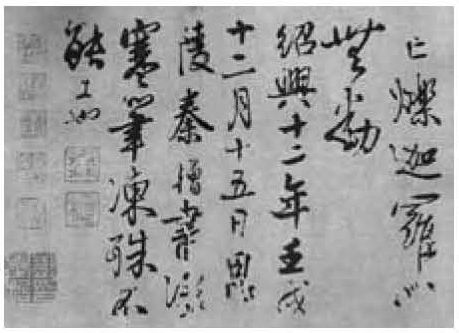 亡爍迦羅心
無動
紹興十二年壬戌
十二月十五日
陵秦憎書
寒筆凍殊不
能工也